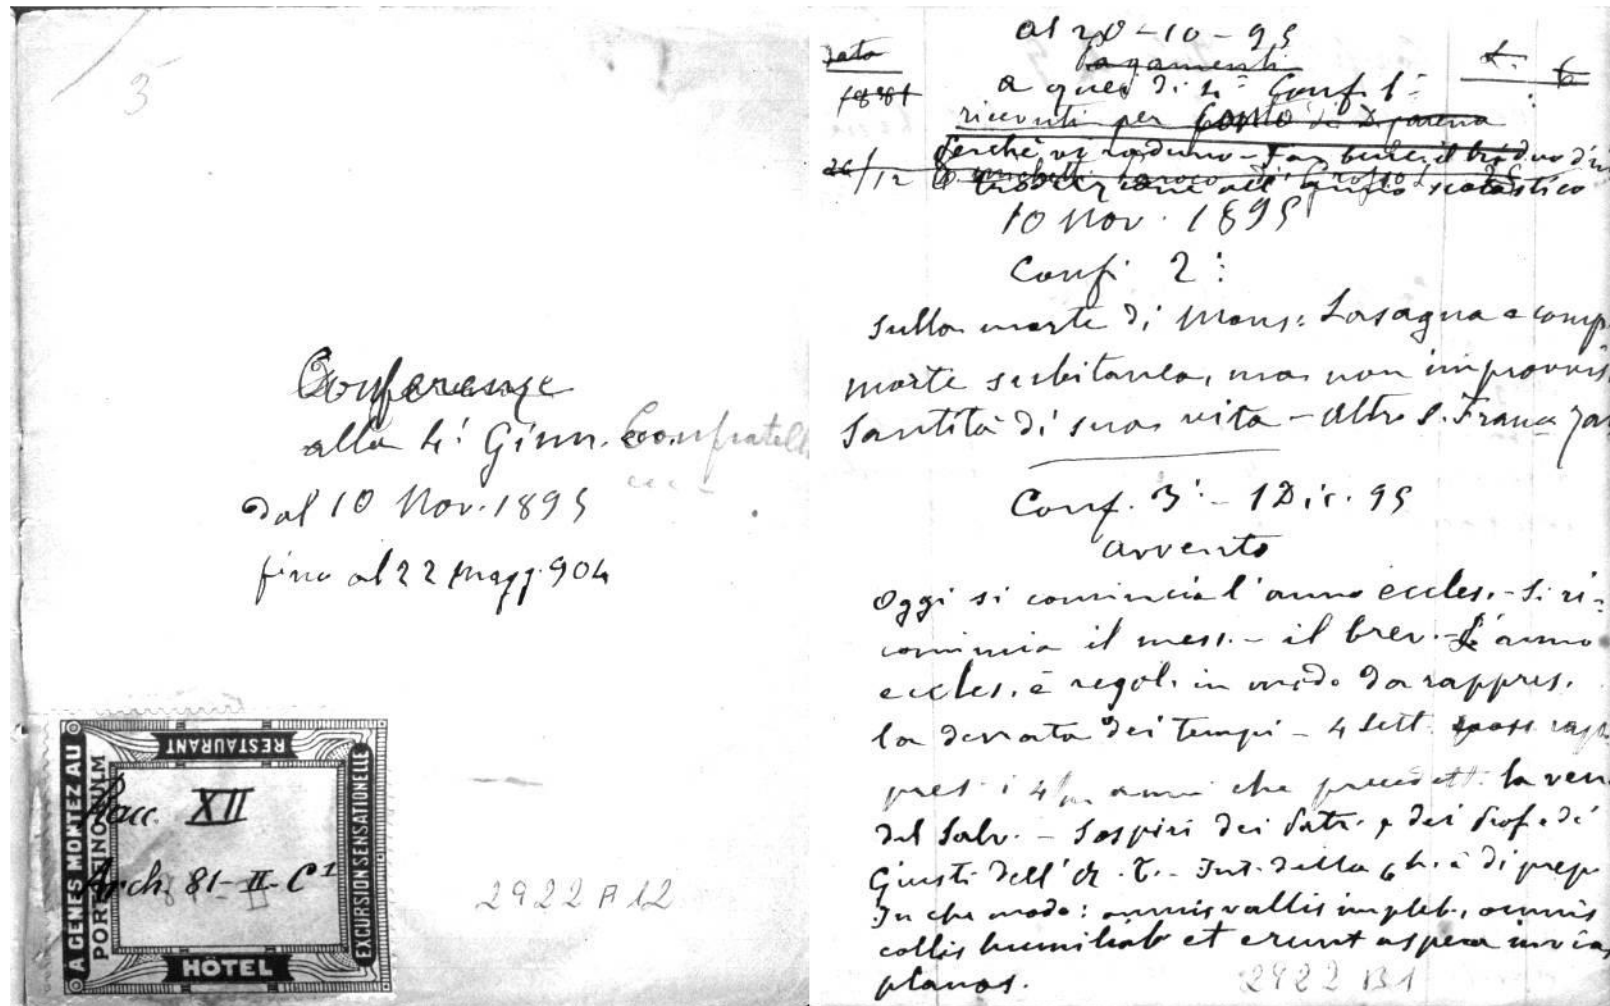 3
Conferenze
alla 4ª Ginn. Confratelli
ecc.
dal 10 Nov. 1895
fino al 22 Magg. 904
A GENES MONTEZ AU
PORTFINO KULM
RESTAURANT
EXCURSION SENSATIONELLE
HÔTEL
Racc. XII
Arch. 81-II-C¹
2922 A 12
al 20-10-95
Data
pagamenti
L.
1881
a quei di 4ª Conf. 1ª
ricevuti per
Perchè vi raduno - Far bene il triduo d'in
26/12
troduzione all'anno scolastico
10 Nov. 1895
Conf. 2ª
Sulla morte di Mons. Lasagna e comp.
morte subitanea, ma non improvvis.
Santità di sua vita - altro S. Franc.
Conf. 3ª - 1 Dic. 95
avvento
Oggi si comincia l'anno eccles. - Si ri-
comincia il mess. - il brev. - L'anno
eccles. è regol. in modo da rappres.
la durata dei tempi - 4 Sett.
pres. i 4/m anni che precedett. la ven
del Salv. - Sospiri dei Patr. e dei Prof. e dè
Giusti dell' A. T. - Int. della Ch. è di prep
In che modo: omnis vallis impleb., omnis
collis humiliab et erunt aspera in vias
planas.
2922 B1